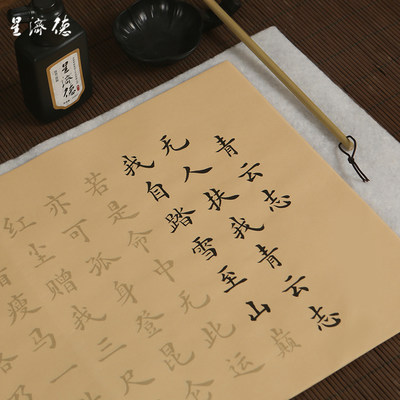 星濟德
星濟德
青云志
无人扶我青云志
我自踏雪至山巅
若是命中无此运
亦可孤身登昆仑
红尘赠我三尺
瘦马